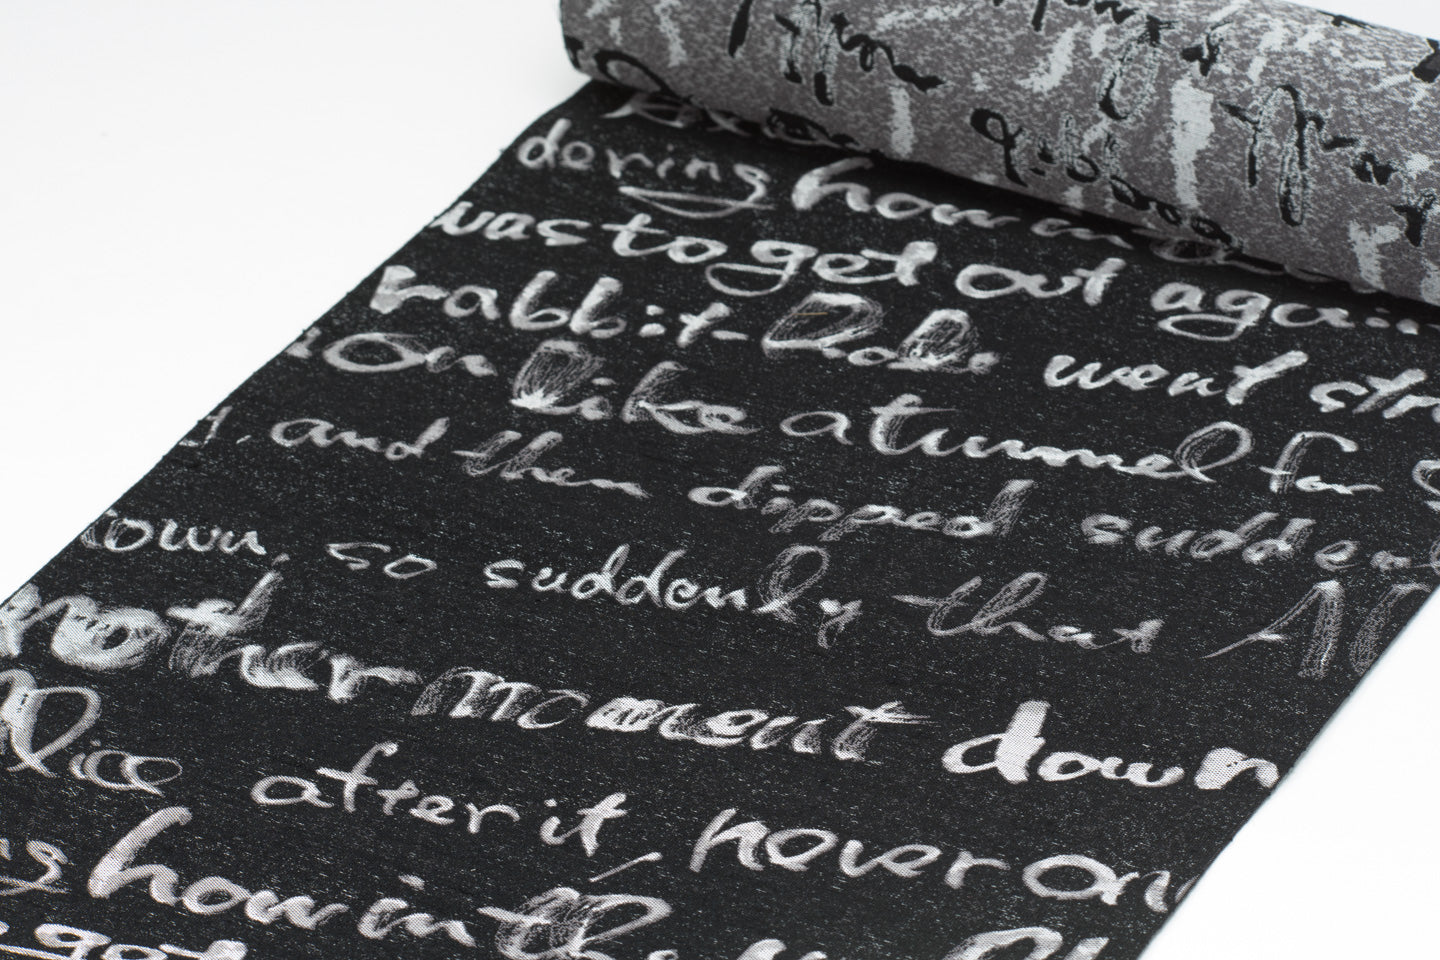 dering how in the
was to get out again
rabbit-hole went str
ion like a tunnel for s
, and then dipped sudden
down, so suddenly that Al
nother moment down
Alice after it, never on
ng how in the
get